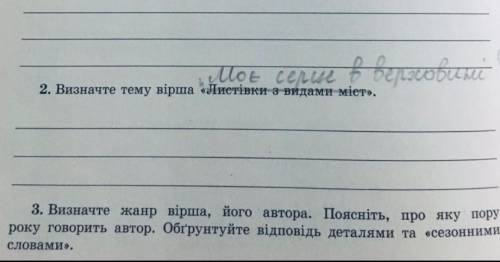 „Моє серце в верховині"
2. Визначте тему вірша «Листівки з видами міст».
3. Визначте жанр вірша, його автора. Поясніть, про яку пору
року говорить автор. Обґрунтуйте відповідь деталями та «сезонними
словами».